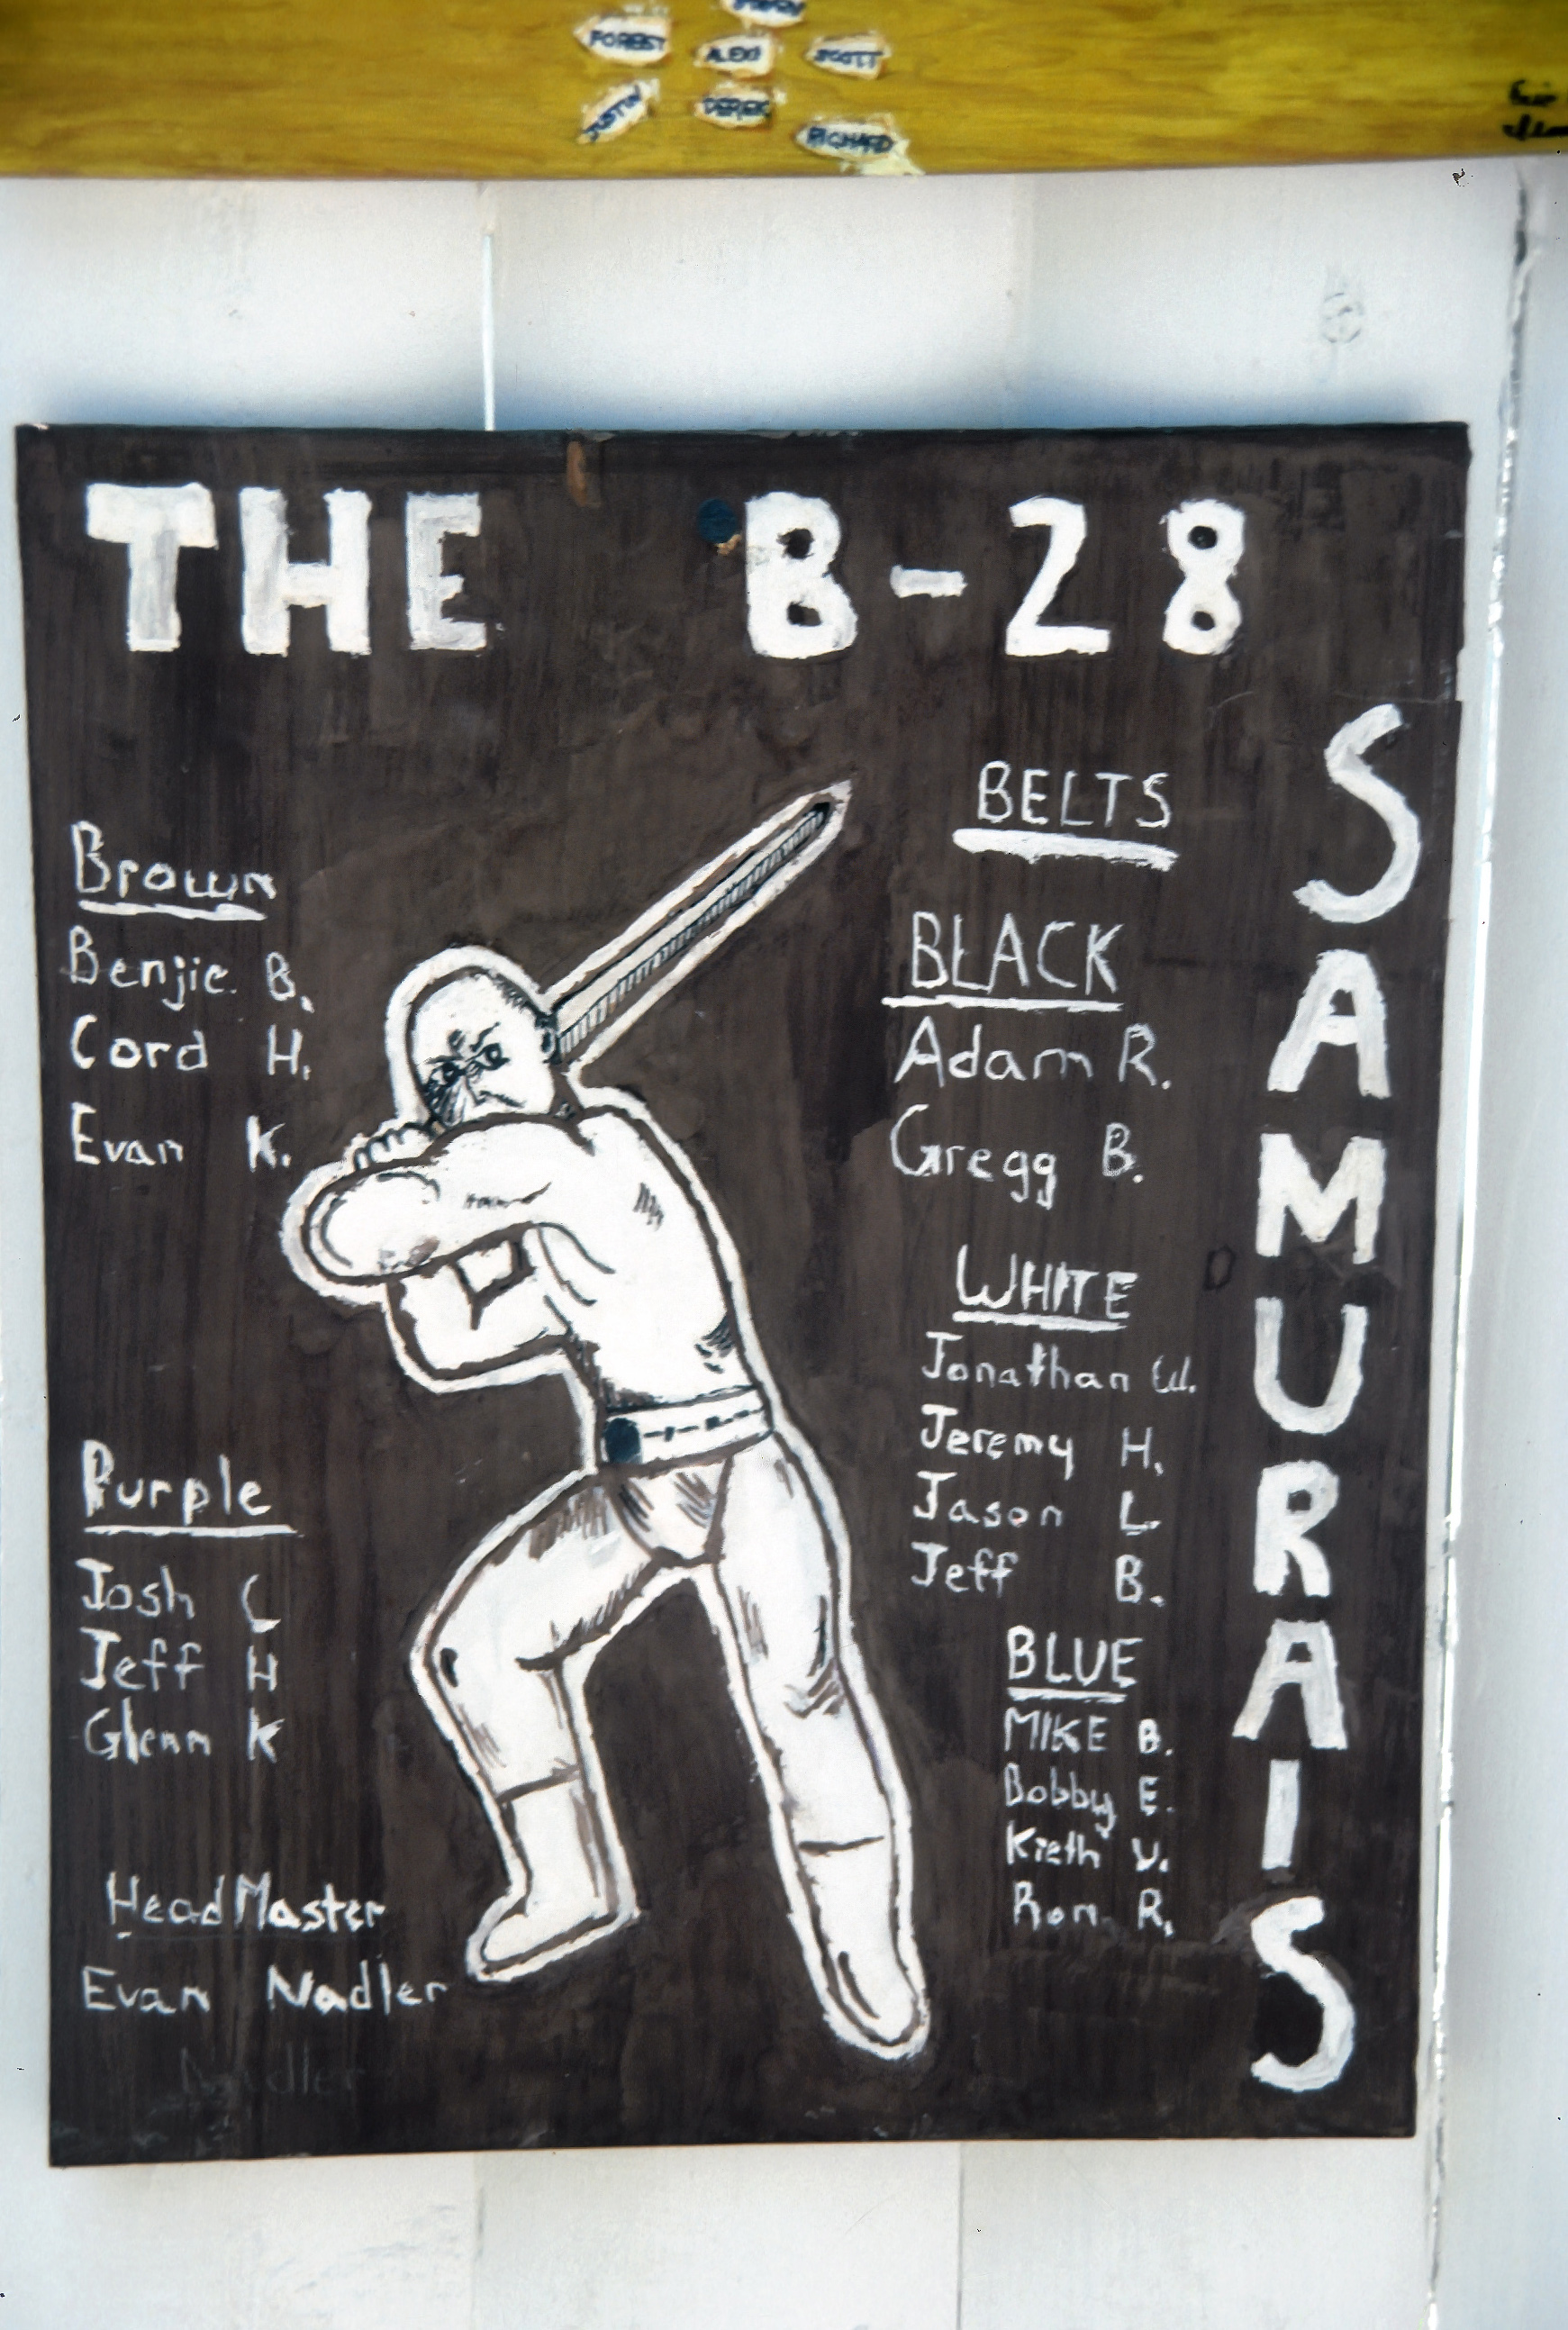 FOREST ALEX SCOTT
JUSTIN DEREK
RICHARD
THE B-28
SAMURAIS
BELTS
Brown
Benjie B.
Cord H.
Evan K.
BLACK
Adam R.
Gregg B.
WHITE
Jonathan W.
Jeremy H.
Jason L
Jeff B.
Purple
Josh C
Jeff H
Glenn K
BLUE
MIKE B.
Bobby E.
Kieth V.
Ron R.
Head Master
Evan Nadler
Nadler